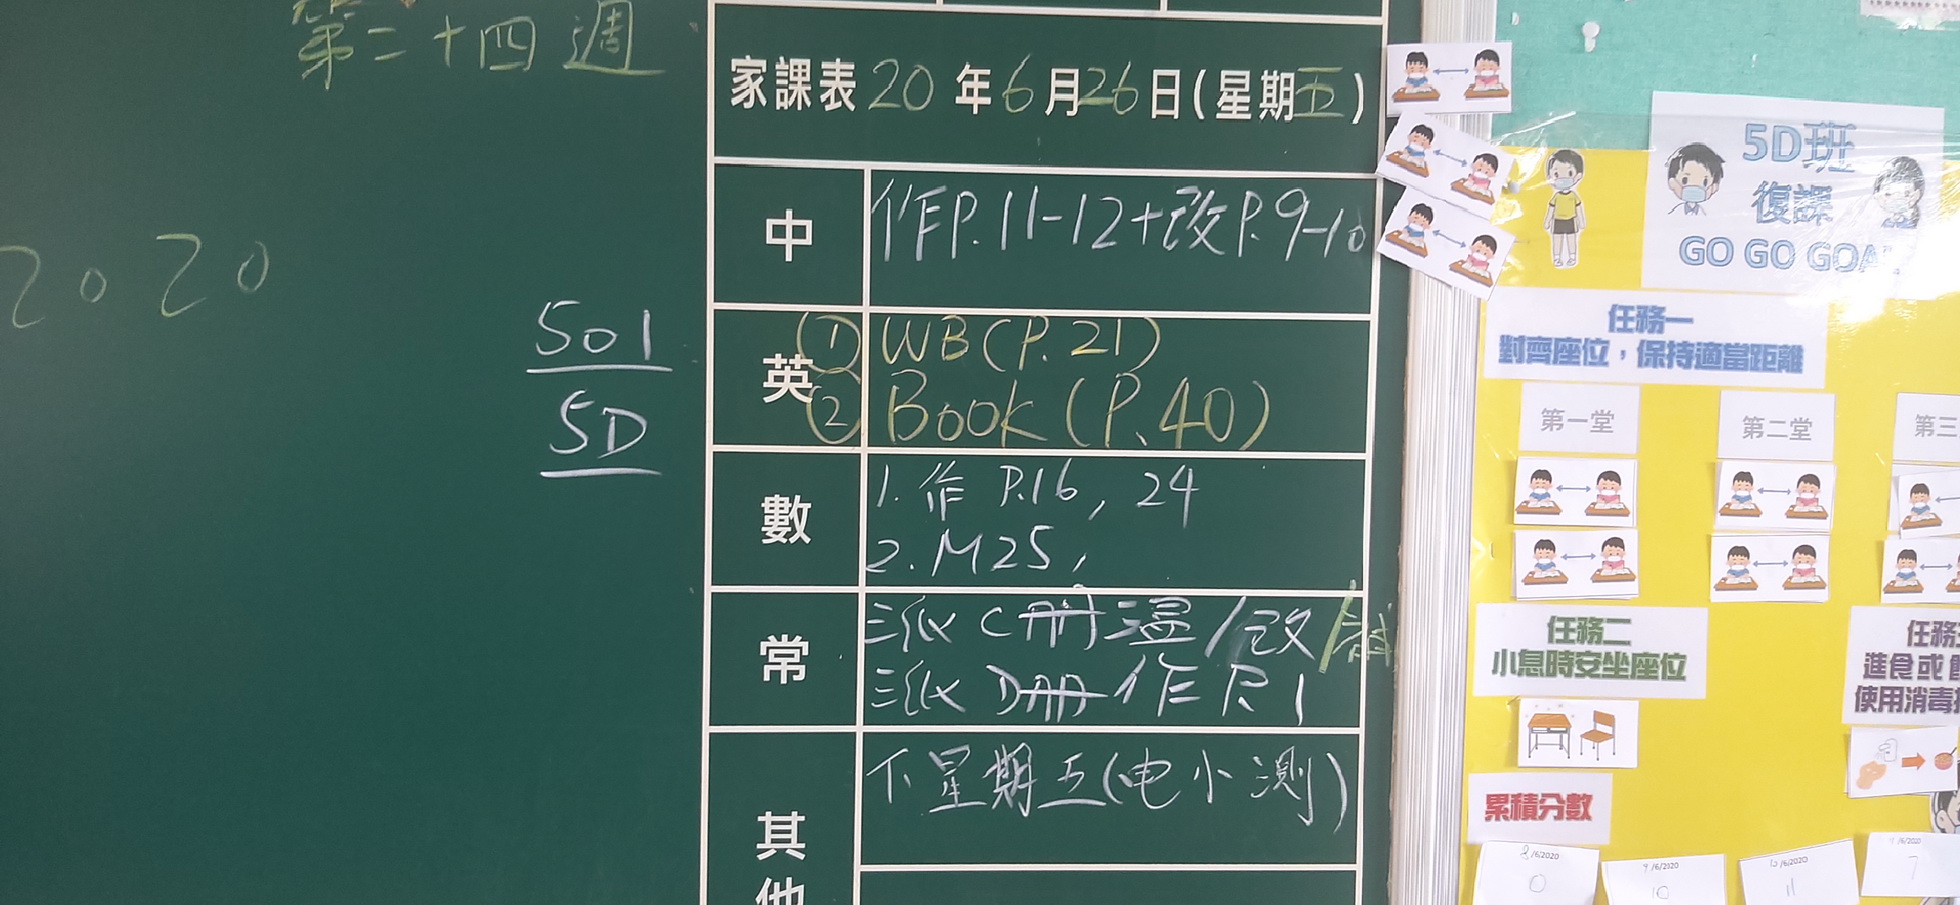 第二十四週
2020
501
5D
家課表20年6月26日(星期五)
中
作P.11-12+改P.9-10
英
(1) WB(P.21)
(2) Book(P.40)
數
1. 作 P.16, 24
2. M25,
常
派C冊溫/改/
派D冊作P.1
其他
下星期五(电小測)
5D班
復課
GO GO GOAL
任務一
對齊座位，保持適當距離
第一堂
第二堂
第三
任務二
小息時安坐座位
任務
進食或
使用消毒
累積分數
8/6/2020
0
9/6/2020
10
10/6/2020
11
/6/2020
7